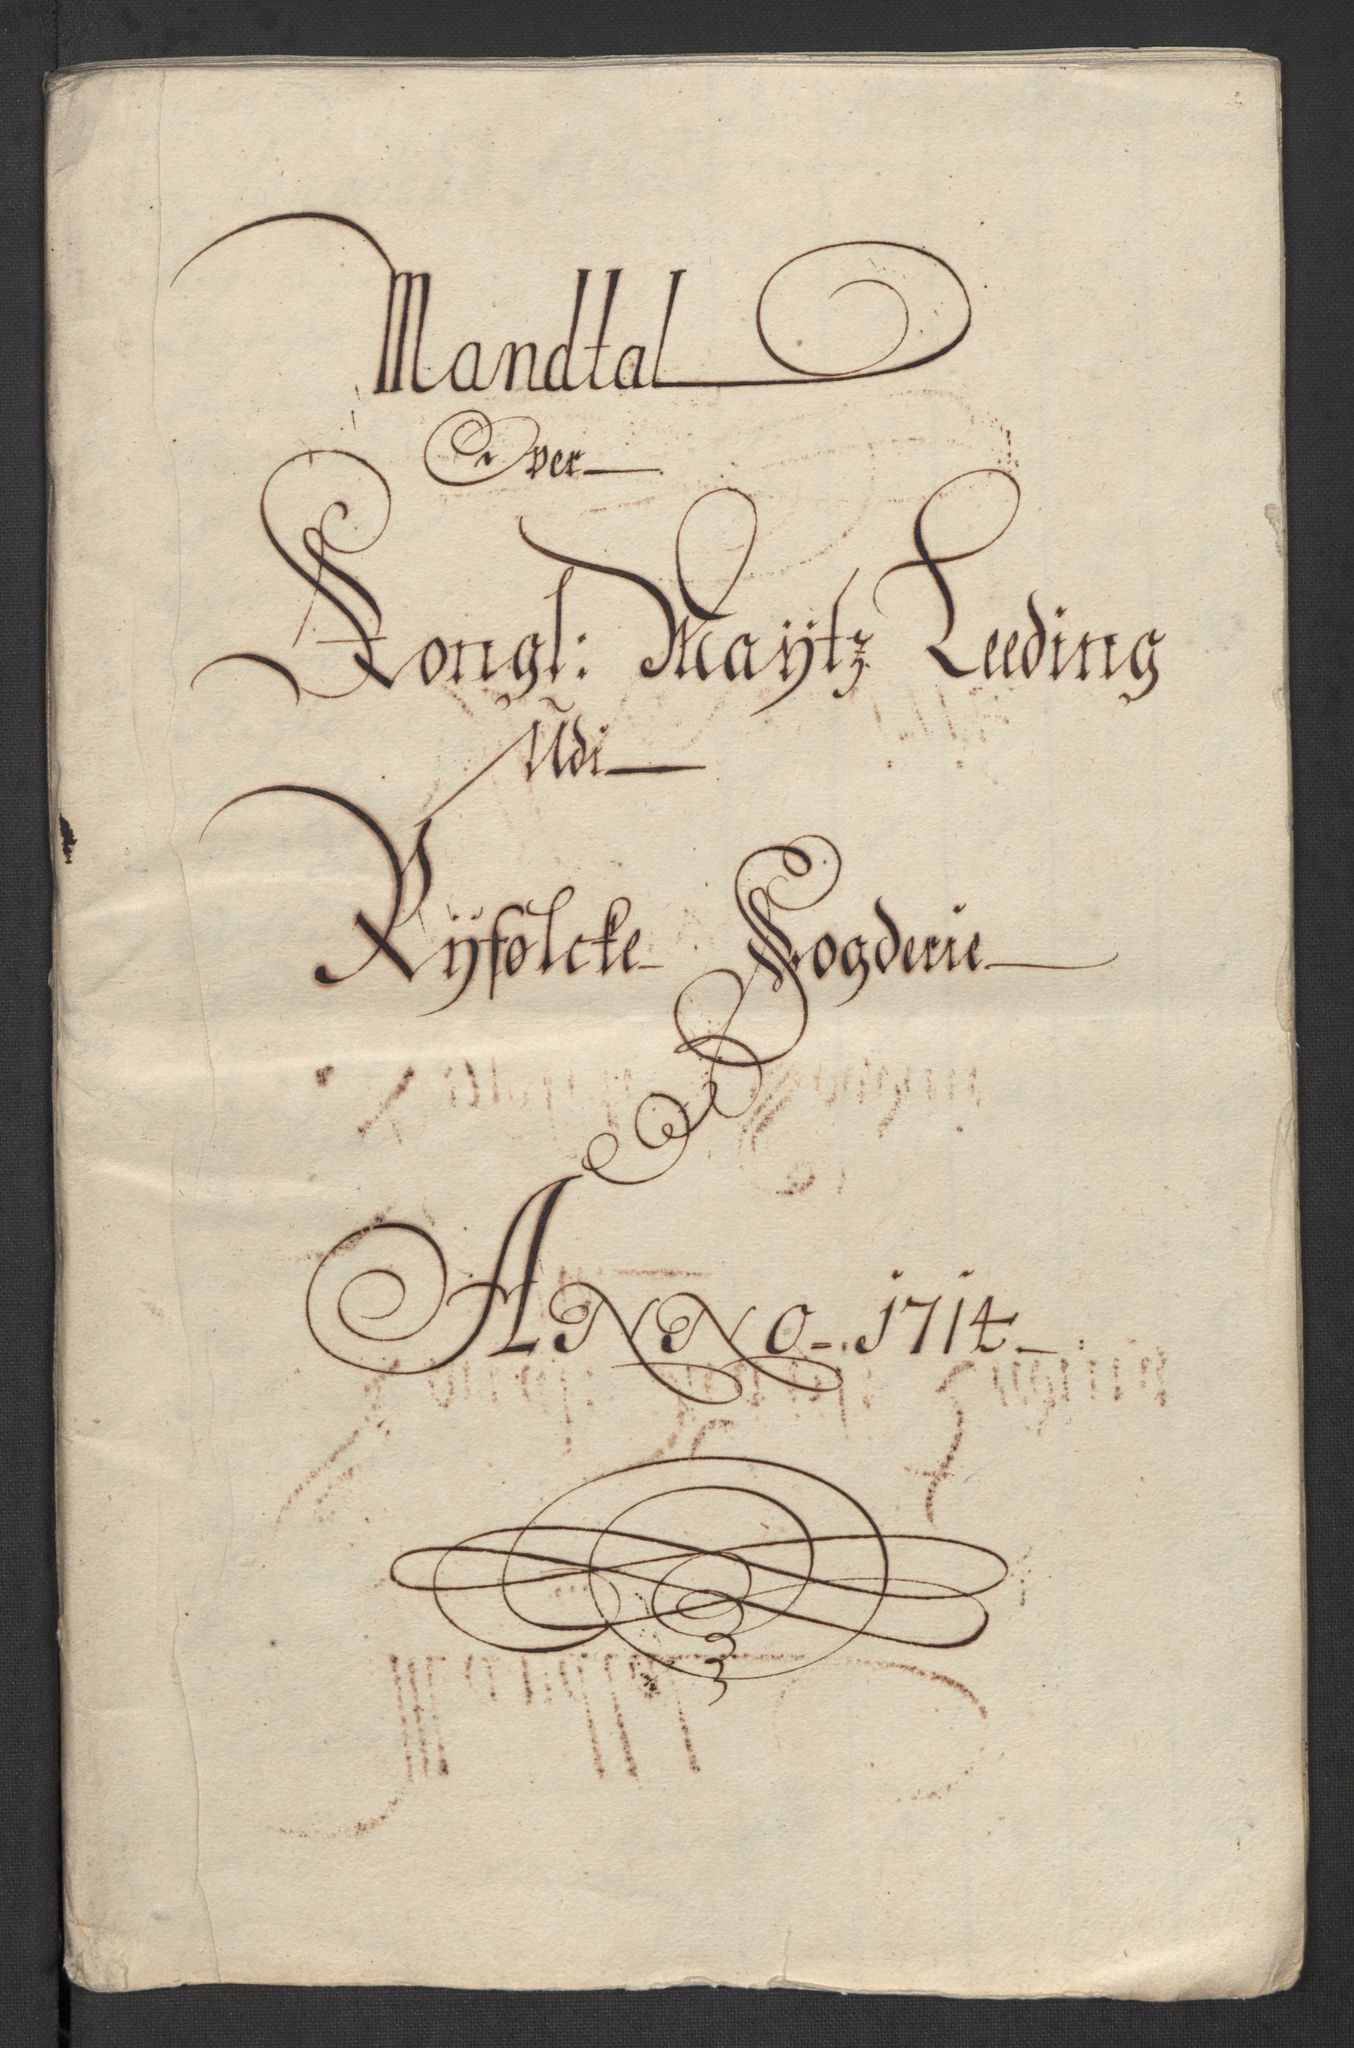 Mandtal
Over
Kongl: Maÿtz Leeding
Udi
Rÿfølcke Fogderie
ANNO 1714